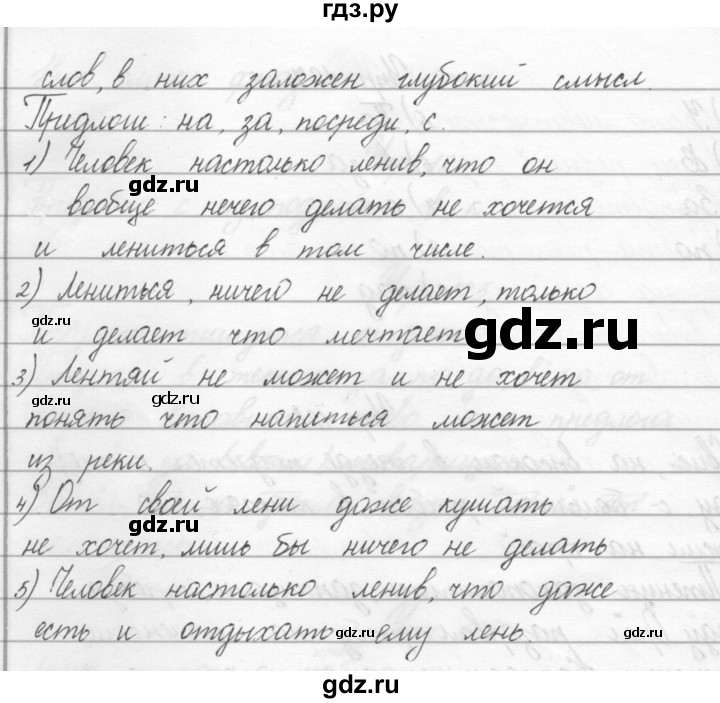 гдз.ру
слов, в них заложен глубокий смысл.
Предлоги: на, за, посреди, с.
1) Человек настолько ленив, что он
gdz.ru
вообще нечего делать не хочется
и лениться в том числе.
2) Лениться, ничего не делает, только
gdz.ru
и делает что мечтает
gdz.ru
3) Лентяй не может и не хочет
gdz.ru
понять что напиться может
из реки.
4) От своей лени даже кушать
gdz.ru
не хочет, лишь бы ничего не делать
5) Человек настолько ленив, что даже
есть и отдыхать ему лень
gdz.ru
gdz.ru
gdz.ru